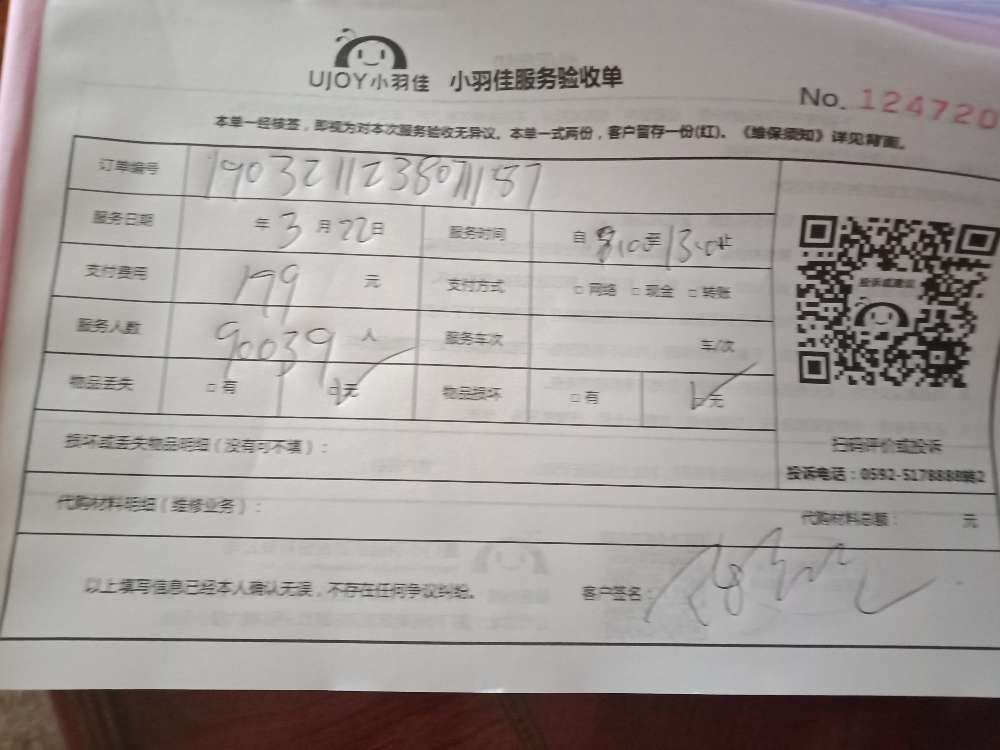 UJOY小羽佳 小羽佳服务验收单
No. 124720
本单一经核签，即视为对本次服务验收无异议。本单一式两份，客户留存一份(红)。《维保须知》详见背面。
订单编号 1903211238071187
服务日期 年 3 月 22 日 服务时间 自 至 13:0 止
支付费用 199 元 支付方式 □ 网络 □ 现金 □ 转账
服务人数 90039 人 服务车次 车/次
物品丢失 □ 有 □ 无 物品损坏 □ 有 □ 无
投诉或建议
扫码评价或投诉
投诉电话：0592-5178888转2
损坏或丢失物品明细（没有可不填）：
代购材料明细（维修业务）： 代购材料总额： 元
以上填写信息已经本人确认无误，不存在任何争议纠纷。 客户签名：